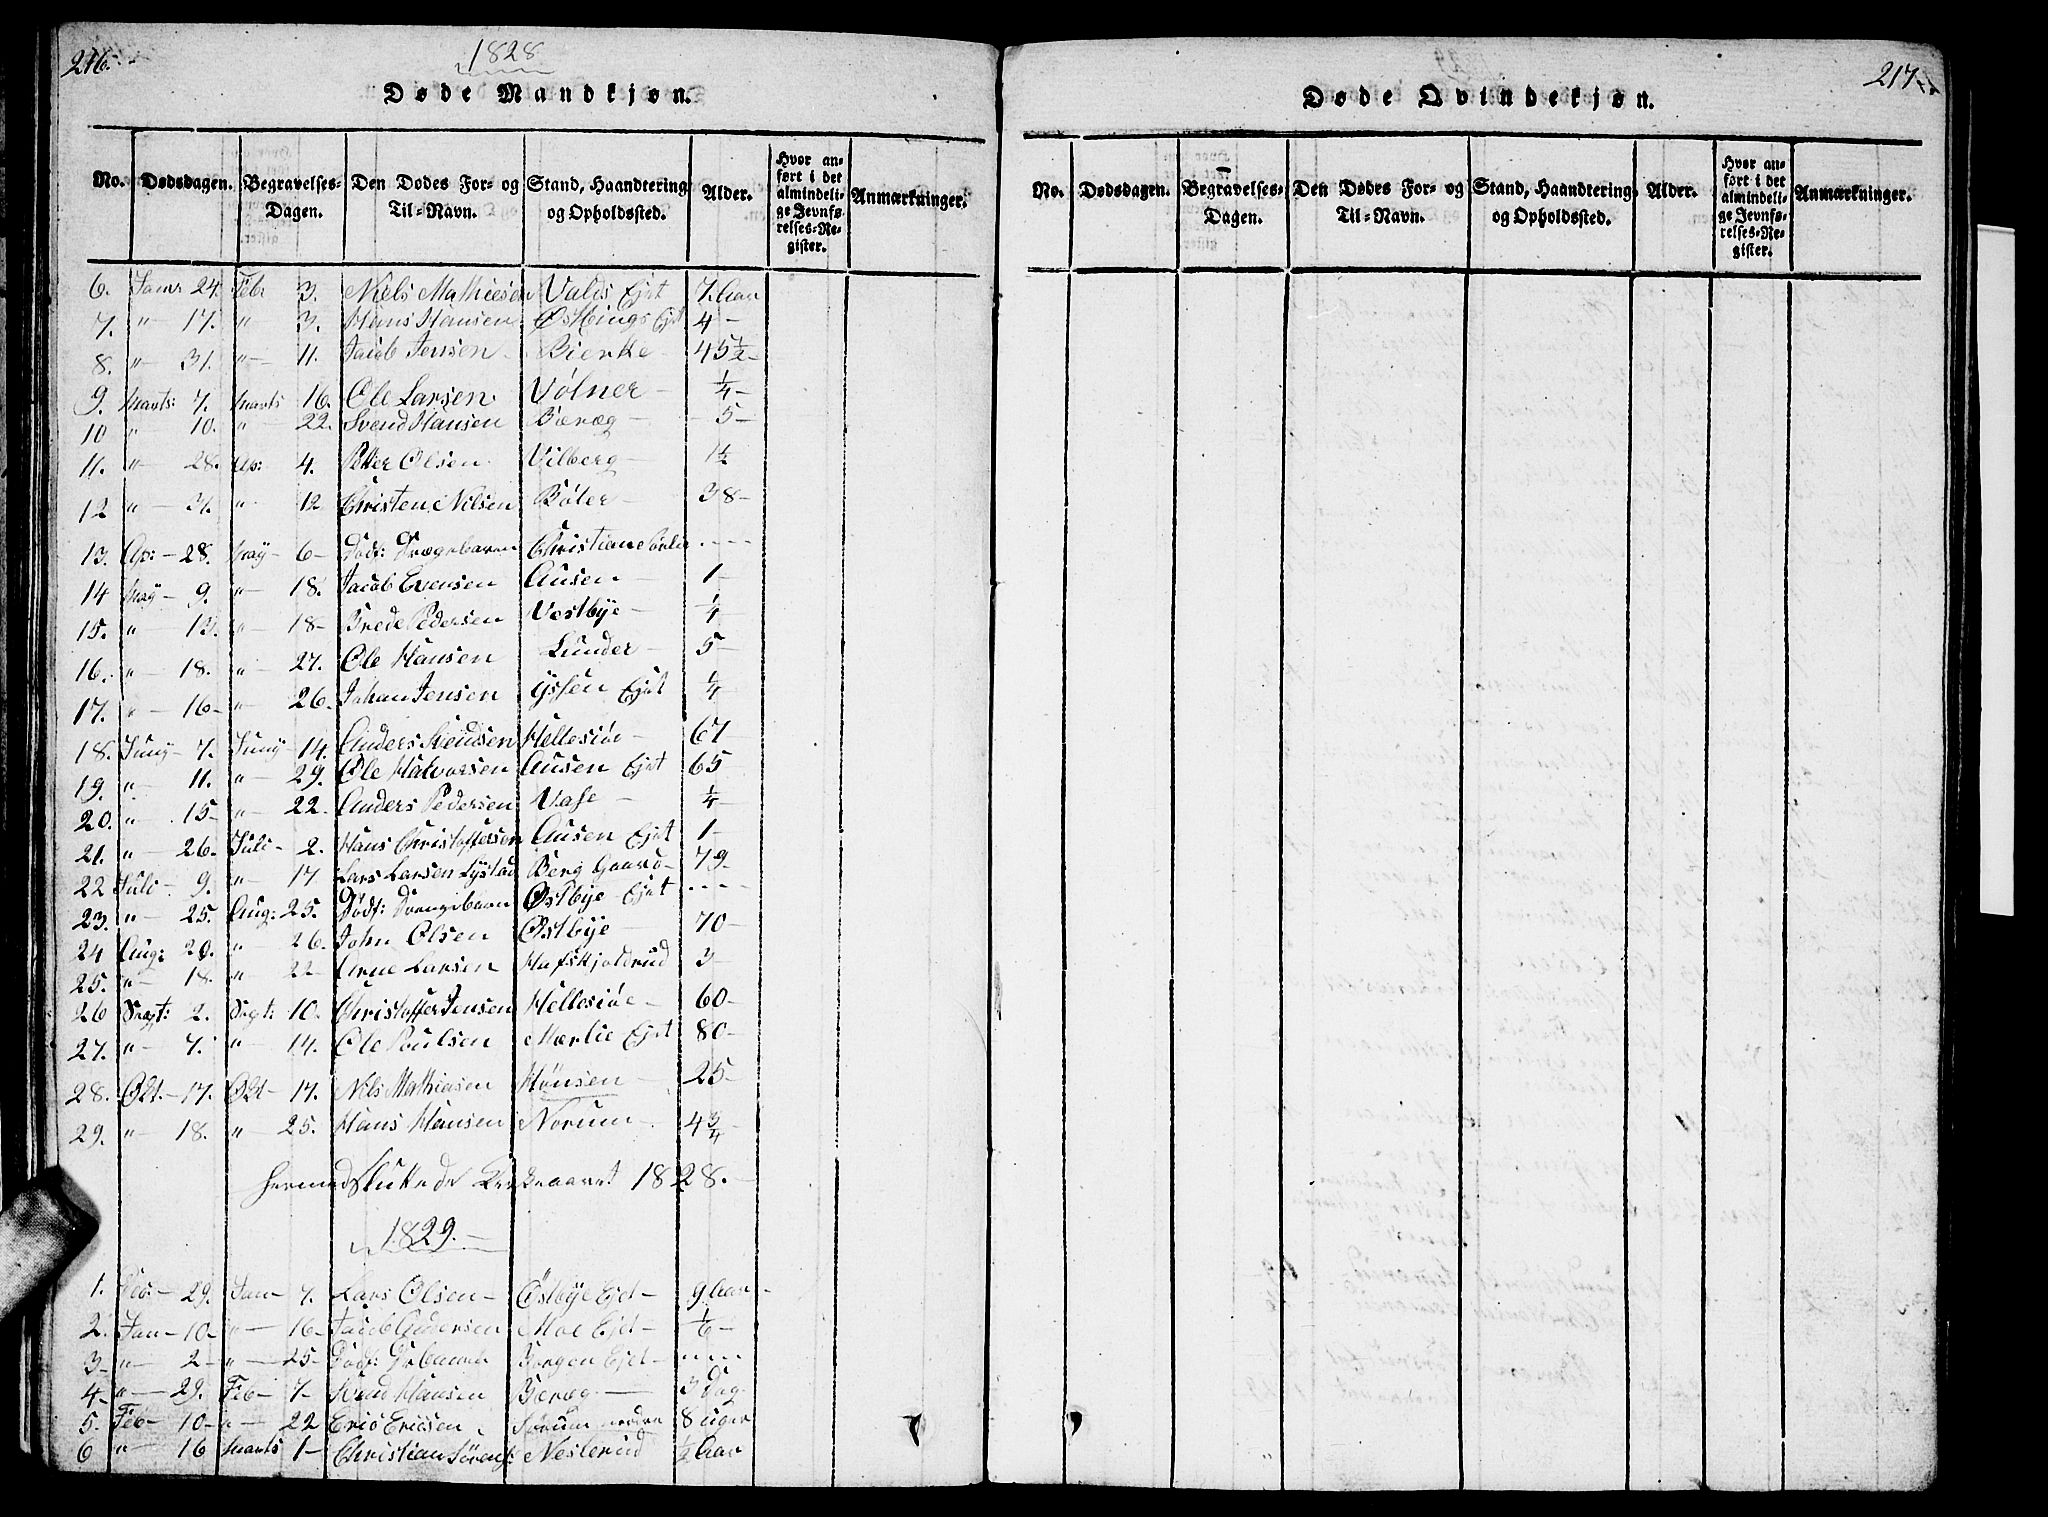 216.
1828
Døde Mandkjøn.
No. Dødsdagen. Begravelses-Dagen. Den Dødes For- og Til-Navn. Stand, Haandtering og Opholdssted. Alder. Hvor anført i det almindelige Jevnførelses-Register. Anmærkninger.
6. Januar 24. Febr 3. Niels Mathiesen Valis Ejet 7. Aar
7. " 17. " 3. Hans Hansen Østbings Ejet 4 -
8. " 31. " 11. Jacob Jensen Bierke 45 1/2 -
9. Marts: 7. Marts 16. Ole Larsen Vølner - 1/4 -
10 " 10. " 22. Svend Hansen Bæræg - - 5 -
11. " 28. Ap: 4. Peter Olsen Vilberg - 1 1/2
12 " 31. " 12 Christen Nilsen Bøler - 38 -
13. Ap: - 28. May - 6 - Dødf: Drægebarn Christian
14 May - 9. " - 18. Jacob Evensen Ausen - 1 -
15. " 13. " - 18 - Brede Pedersen Vestbye - 1/4 -
16. " - 18. " - 27. Ole Hansen Lunder - 5 -
17. " - 16 - " - 26. Johan Jensen Ejet 1/4 -
18. Juny - 7. Juny - 14. Anders Svendsen Hellesiøe - 67
19. " - 11. " - 29. Ole Halvorsen Ausen Ejet 65
20. " . 15 - " - 22. Anders Pedersen - 1/4 -
21. " - 26 - Juli - 2. Hans Christoffersen Ausen Ejet 1 -
22 Juli - 9. " - 17 Lars Larsen Lystad Berg Gaard - 79 -
23. " - 25. Aug: 25. Dødf: Drengebarn Østbye Ejet - - - -
24 Aug: 20. " - 26. John Olsen Østbye - 70 -
25. " - 18. " - 22 - Arne Larsen Hafskjoldrud 3 -
26 Sept: 2. Sept: 10. Christoffer Jensen Hellesiøe - 60 -
27. " - 7. " - 14. Ole Poulsen Mærlie Ejet 80 -
28. Oct. - 17. Oct - 17. Nils Mathiasen Hønsen - 25 -
29. " - 18. " - 25. Hans Hansen Norum - 4 3/4 -
hermed Sluttede Kirkeaaret 1828. -
1829. -
1. 29. Jan - 7. Lars Olsen - Østbye Ejet - 9 Aar -
2. Jan - 10 - " - 16 - Jacob Andersen Moe Ejet - 1/6 -
3 - " - 2 - " - 25 - Dødf: Borgen Ejet - - - - -
4 - " - 29. Feb - 7 - Knud Hansen Bæræg - 3 Dag
5. Feb - 10 - " - 22 Eric Ericsen Sørum nedre 8 uger
6 " - 16 Marts 1 - Christian Sørens: Neslerud 1/2 Aar
217.
Døde Qvindekjøn.
No. Dødsdagen. Begravelses-Dagen. Den Dødes For- og Til-Navn. Stand, Haandtering og Opholdssted. Alder. Hvor anført i det almindelige Jevnførelses-Register. Anmærkninger.